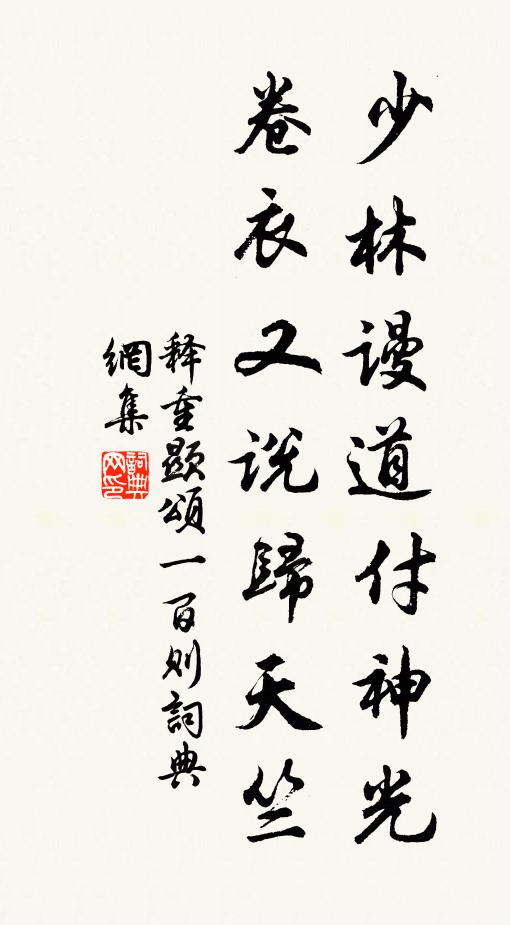 少林謾道付神光
卷衣又説歸天竺
释重顯頌一百则詞典
網集
詞典
网印